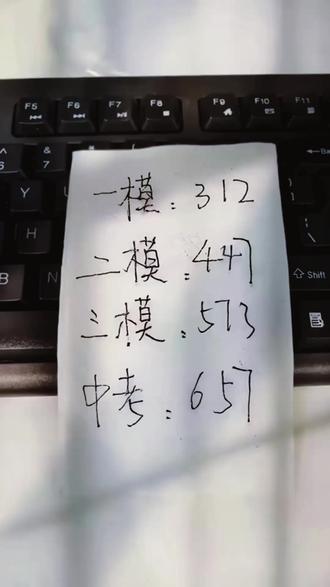 F5 F6 F7 F8 F9 F10 F11
一模：312
二模：447
三模：573
中考：657
^ 6 & 7
Y U
H
B N
← Bac
⇧ Shift